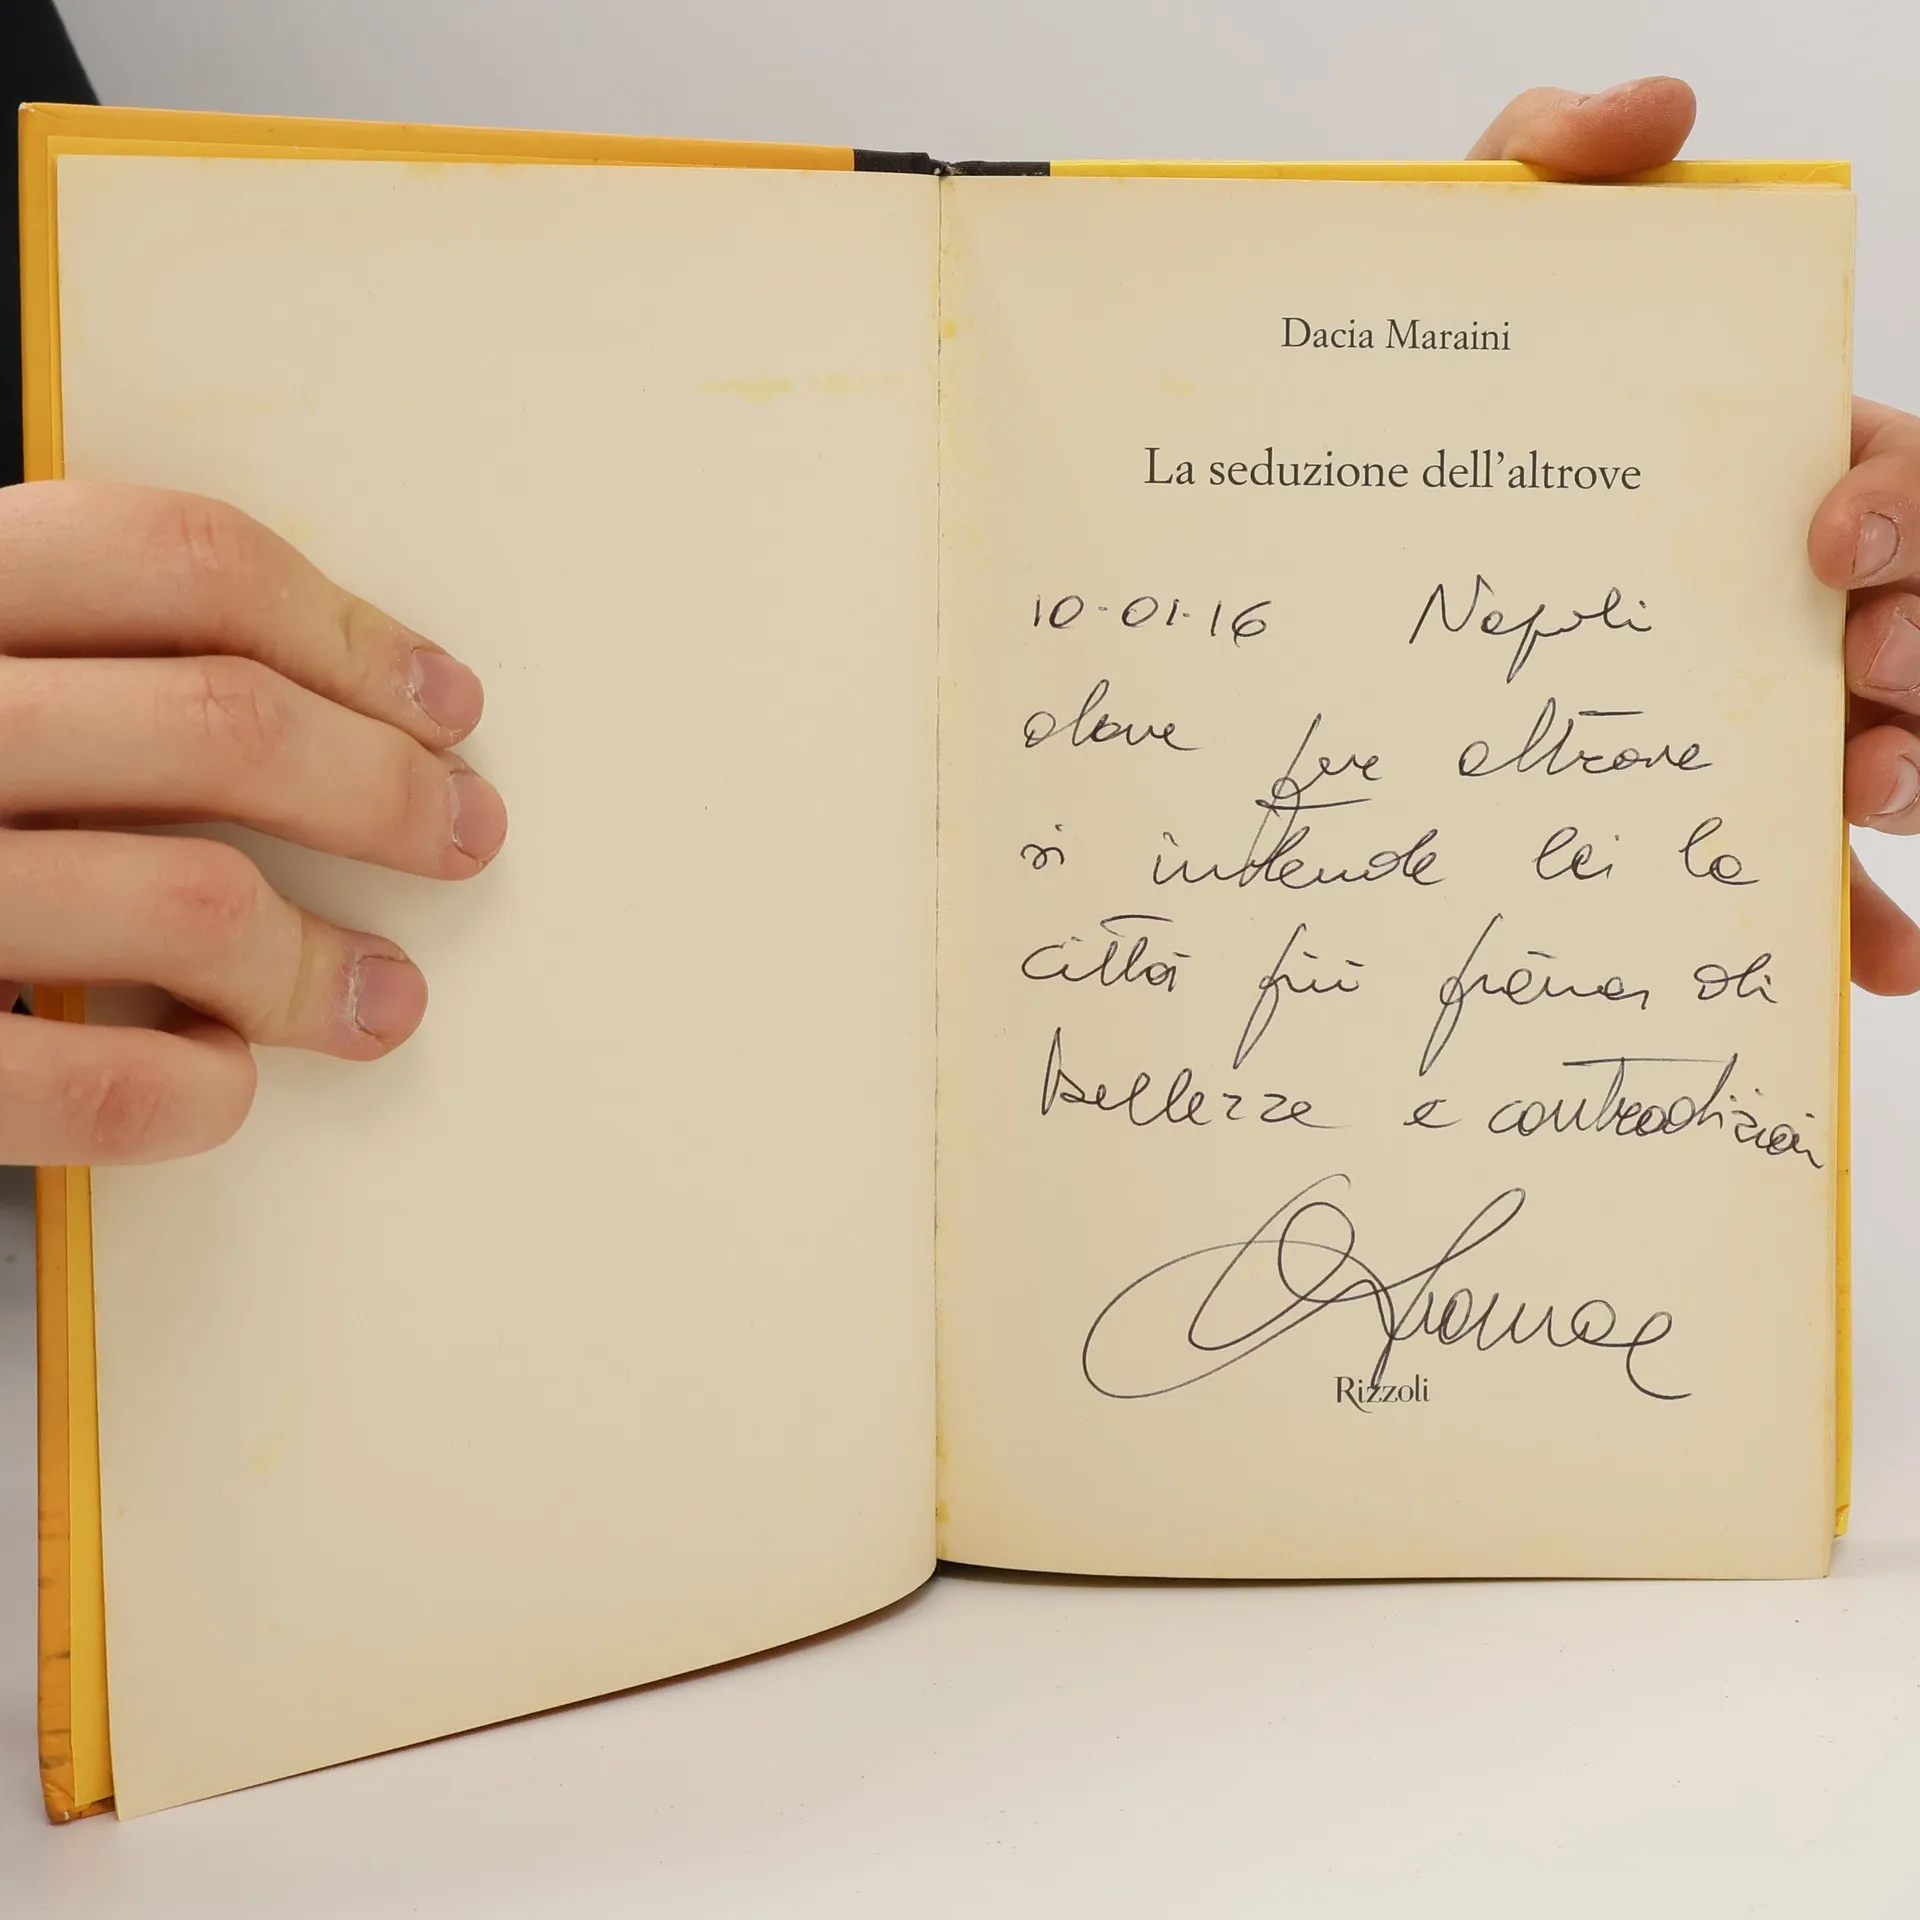 Dacia Maraini
La seduzione dell'altrove
10-01-16 Napoli
dove per altrove
si intende lei la
città più piena di
bellezze e contraddizioni
Rizzoli